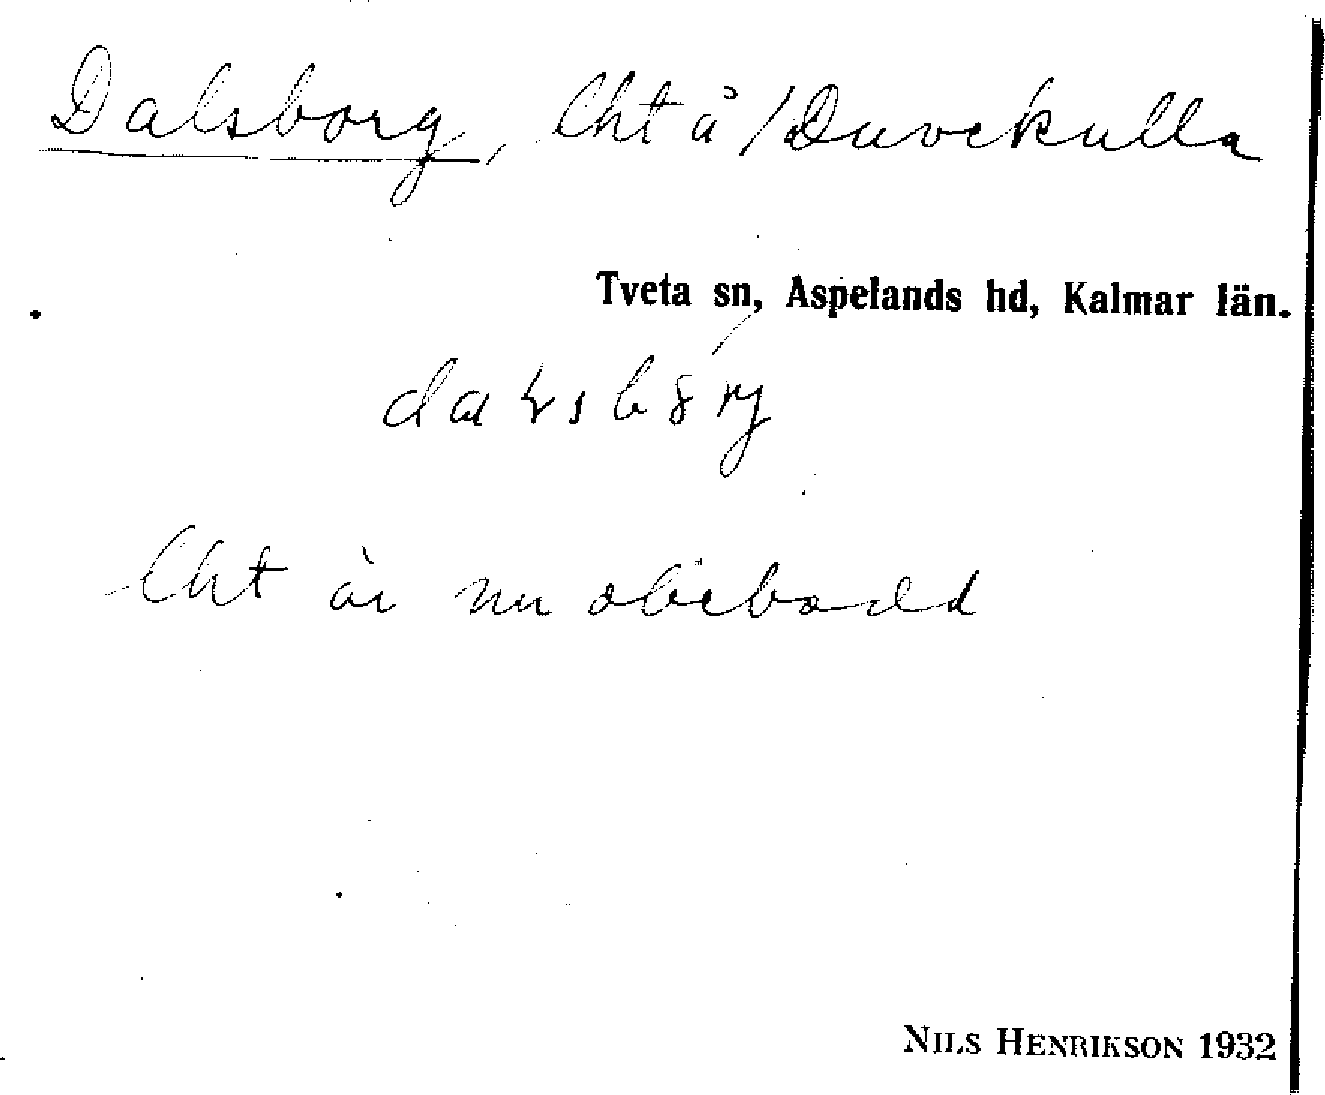 Dalsborg, lht å /Duvekulla
Tveta sn, Aspelands hd, Kalmar län.
lht är nu obebodd
NILS HENRIKSON 1932